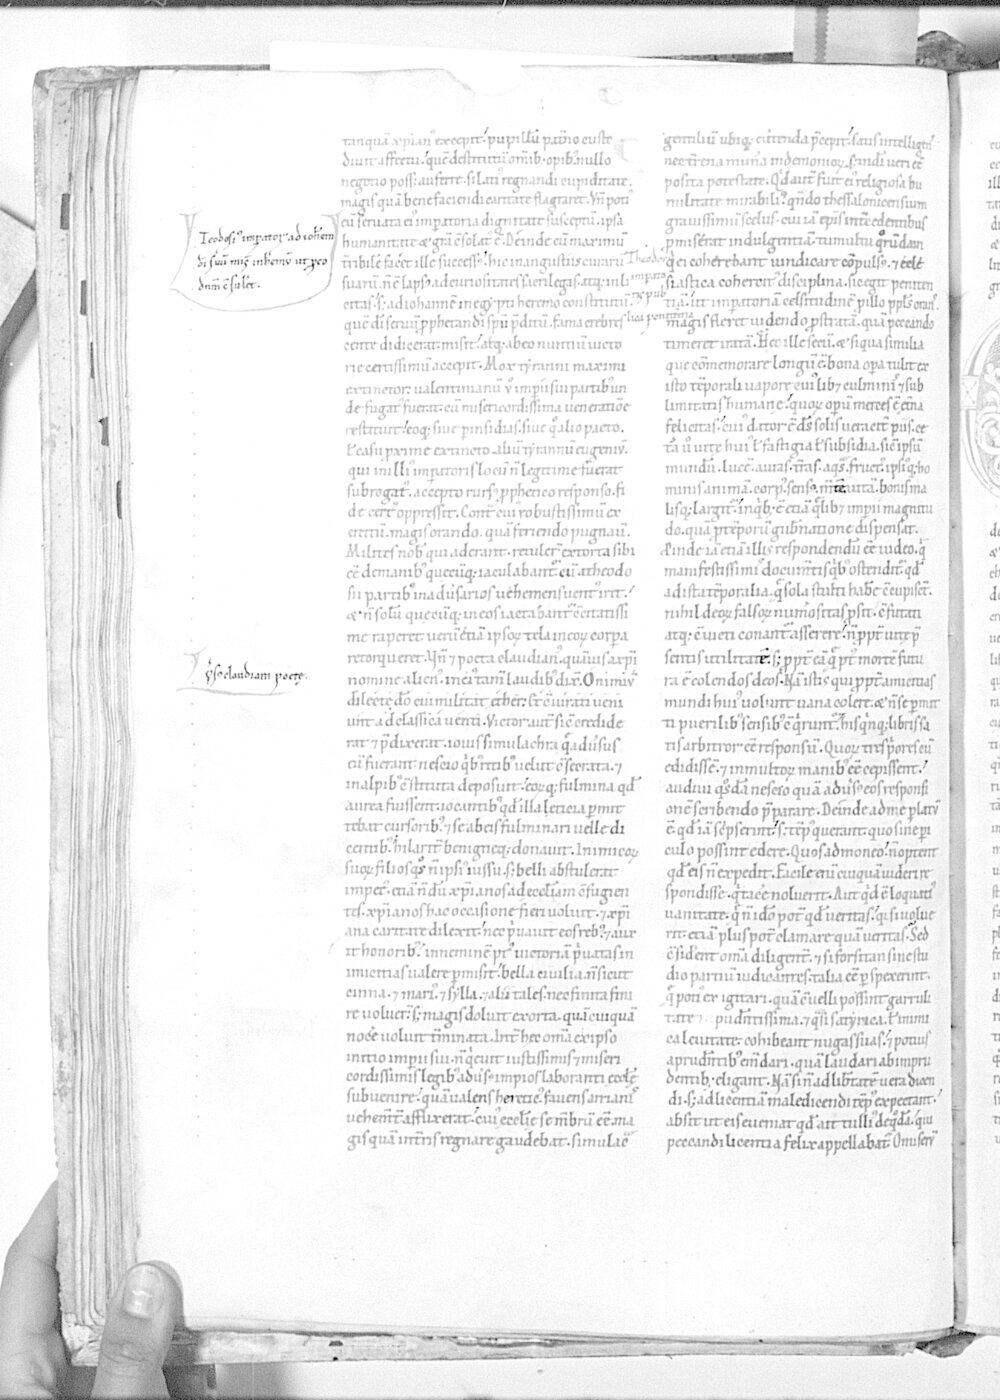 tanquā xp̄ian᾽ excepit. pupillū pat̄no custo
diuit affectu. quē destitutū om̄ib; opib; nullo
negotio poss; auferre. si latı᾽ regnandi cupiditate
magis quā benefaciendi caritate flagraret. Vn̄ poti᾽
eū seruata ei᾽ imp̄atoria dignitate susceptū. ipsa
humanitate & gr̄a c̄solat᾽ ē. Deinde cū maximū
t̄ribilē facēt ille success᾽. hic in angustiis curarū
suarū. n̄ ē laps᾽ ad curiositates sacrilegas. atq; inli
citas. s; ad iohannē in egypti heremo constitutū
quē di seruū pphetandi spū p̄ditū. fama crebres
cente didicerat. misit. atq; ab eo nuntiū victo
rie certissimū accepit. Mox tẏranni maximi
extinctor. ualentinianū v᾽ imp̄ii sui partib; un
de fugat᾽ fuerat. cū misericordissima ueneratiōe
restituit. eoq; siue p insidias. siue q᾽ alio pacto.
ł casu p̄xime extincto. aliū tẏrannū eugeniū.
qui in illi᾽ imp̄atoris locū n̄ legitime fuerat
subrogat᾽. accepto rurs᾽ pphetico responso. fi
de cert᾽ oppressit. Cont᾽ cui᾽ robustissimū ex
ercitū. magis orando. quā feriendo pugnauit.
Milites nob qui aderant. retuler̄ extorta sibi
ēē de manib; quecūq; iaculabant. cū a theodo
sii partib; in adūsarios uehemens uent᾽ iret.
& n̄ solū quecūq; in eos iactabant᾽ c̄citatissi
me raperet uerū etiā ipsoꝝ tela in eoꝝ corpa
retorqueret. Vn̄ & poeta claudian᾽. quāuis a xp̄i
nomine alien᾽. in ei᾽ tam̄ laudib; dix̄. O nimiū
dilecte dō cui militat ether. Et c̄iurati ueni
unt ad classica uenti. Victor aut̄ sic̄ credide
rat & p̄dixerat. iouis simulachra q̄ aduersus
eū fuerant nescio q᾽b; ritib; uelut c̄secrata. &
in alpib; c̄stituta deposuit. eoꝝq; fulmina qd᾽
aurea fuissent. iocantib; qd᾽ illa leticia p̄mit
tebat cursorib; & se ab eis fulminari uelle di
centib; hilarit̄ benigneq; donauit. Inimicoꝝ
suoꝝ filios q᾽s n̄ ipsi᾽ iussu. s; belli abstulerat
impet᾽. etiā n̄dū xp̄ianos ad eccliam c̄fugien
tes. xp̄ianos hac occasione fieri uoluit. & xp̄i
ana caritate dilexit. nec p̄uauit eos reb; & aux
it honorib; In neminē pt᾽ victoriā p̄uatas in
imicitias ualere p̄misit. bella ciuilia n̄ sicut
cinna. & mari᾽. & sẏlla. & alii tales. nec finita fini
re voluer̄. s; magis doluit exorta. quā cuiquā
nocē voluit t̄minata. Int̄ hec om̄a ex ipso
initio imp̄ii sui. n̄ q᾽euit iustissimis & miseri
cordissimis legib; aduers᾽ impios laboranti eccłe
subuenire. quā ualens heretic᾽. fauens arrianis
uehem̄t̄ afflixerat. cui᾽ ecclie se m̄brū ēē. ma
gis quā in t̄ris regnare gaudebat. Simulac̄
Teodosi᾽ imp̄ator ad ioh̄em
di seruū misit in herem̄ ut p eo
dn̄m c̄sulet.
V᾽s᾽ claudiani poete.
Theodosi᾽
imp̄ato
ris pub
lica penitentia
gentiliū ubiq; eu᾽tenda p̄cepit. satis intelligens
nec t̄rena mun̄a in demonioꝝ. s; in di ueri ēē
posita potestate. Qd᾽ aut̄ fuit ei᾽ religiosa hu
militate mirabili᾽. q̄ndo thessalonicensium
grauissimū scelus. cui iā ep̄is int̄cedentibus
p̄miserat indulgentiā. tumultu q᾽rūdam
q᾽ ei coherebant uindicare c̄puls᾽. & eccłe
siastica cohercit᾽ disciplina. sic egit peniten
tiā. ut imp̄atoriā celsitudinē p illo ppl᾽s orans.
magis fleret uidendo p̄stratā. quā peccando
timeret iratā. Hec ille secū. & siqua similia
que cōmemorare longū ē. bona op̄a tulit ex
isto tēporali uapore cui᾽lib; culmini᾽ & sub
limitatis humane. quoꝝ opūm merces ē et̄na
felicitas. cui᾽ dator ē ds̄ solis uera c̄t̄ piis. ce
t̄a u᾽ uite hui᾽ ł fastigia ł subsidia. sic̄ ipsū
mundū. lucē. auras. t̄ras. aquas. fruct᾽. ipsiq; ho
minis animā. corp᾽. sens᾽. m̄tē. uitā. bonis ma
lisq; largit᾽. in q᾽b; ē etiā q᾽lib; imp̄ii magnitu
do. quā p̄ tēporū gub̄natione dispensat.
Proinde iā etiā illis respondendū ēē uideo. q᾽
manifestissimi᾽ docum̄tis q᾽b; ostendit᾽. qd᾽
ad ista tēporalia. q̄ sola stulti habē c̄cupiscunt.
nihil deoꝝ falsoꝝ num̄ositas p̄sit. c̄futati
atq; c̄uicti conant᾽ asserere. n̄ ppt̄ uitę p̄
sentis utilitatē. s; ppt̄ eā q̄ p᾽ mortē futu
ra ē colendos deos. Nā istis qui ppt̄ amicitias
mundi hui᾽ uolunt uana colere. & n̄ se p̄mit
ti puerilib; sensib; c̄q᾽runt᾽. his q᾽nq; libris sa
tis arbitror ēē responsū. Quoꝝ tres p̄ores cū
edidissē. & in multoꝝ manib; ēē cepissent.
audiui q᾽sdā nescio quā aduers᾽ eos responsi
onē scribendo p̄parare. Deinde ad me p̄latū
ē qd᾽ iā sc̄pserint. s; tēp᾽ querant. quo sine pi
culo possint edere. Quos admoneo. n̄ optent
qd᾽ eis n̄ expedit. Facile ē cuiquā uideri re
spondisse. q᾽ tacē noluerit. Aut qd᾽ ē loquati᾽
uanitate. q̄ n̄ ido pot᾽ qd᾽ ueritas. q᾽ si uolue
rit. etiā plus pot᾽ clamare quā ueritas. Sed
c̄sident om̄a diligent̄. & si forsitan sine stu
dio partiū iudicantes. talia ēē p̄spexerint.
q̄ poti᾽ exigitari. quā c̄uelli possint garruli
tate pudentissima. & q᾽si satẏrica. ł mimi
ca leuitate. cohibeant nugas suas. & potius
a prud̄ntib; em̄dari. quā laudari ab impru
dentib; eligant. Nā si n̄ ad lib̄tatē uera dicen
di. s; ad licentiā maledicendi tēp᾽ expectant.
absit ut eis eueniat qd᾽ ait tulli᾽ de q᾽dā. qui
peccandi licentia felix appellabat᾽. O miserū